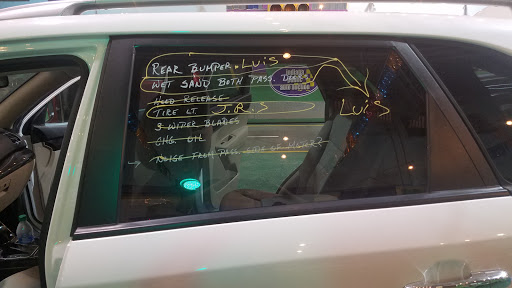 REAR BUMPER. LUIS
WET SAND BOTH PASS.
HOOD RELEASE
TIRE LT J.R.S
LUIS
3 WIPER BLADES
CHG. OIL
NOISE FROM PASS. SIDE OF MOTOR?